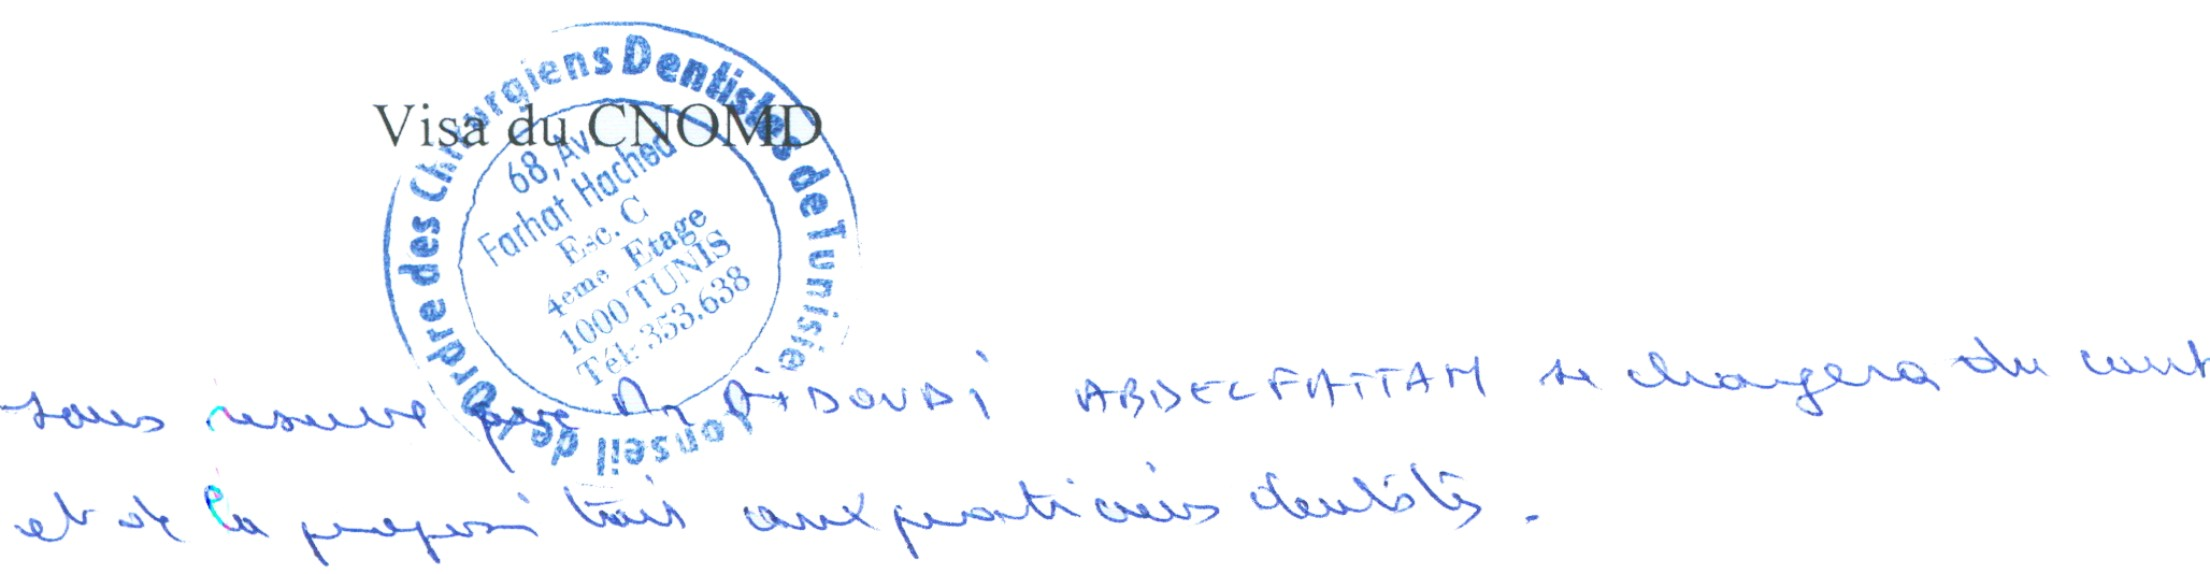 Visa du CNOMD
Conseil de l'Ordre des Chirurgiens Dentistes de Tunisie
68, Av.
Farhat Hached
Esc. C
4eme Etage
1000 TUNIS
Tél: 353.638
sous reserve que Dr ABDELFATTAH se chargera du
et de la aux praticiens dentistes.